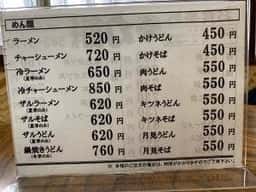 めん類
ラーメン 520円
チャーシューメン 720円
冷ラーメン 650円
(夏季のみ)
冷チャーシューメン 850円
(夏季のみ)
ザルラーメン 620円
(夏季のみ)
ザルそば 620円
(夏季のみ)
ザルうどん 620円
(夏季のみ)
鍋焼きうどん 760円
(冬季のみ)
かけうどん 450円
かけそば 450円
肉うどん 550円
肉そば 550円
キツネうどん 550円
キツネそば 550円
月見うどん 550円
月見そば 550円